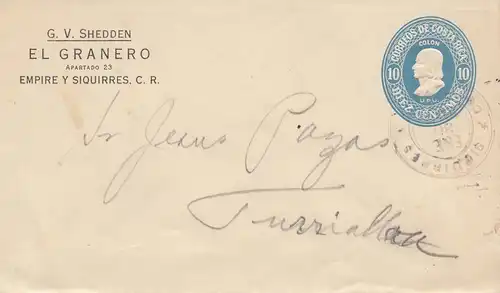 G. V. SHEDDEN
EL GRANERO
APARTADO 23
EMPIRE Y SIQUIRRES, C. R.
CORREOS DE COSTA RICA
COLON
10 10
U.P.U.
DIEZ CENTIMOS
ENE
SIQUIRRES
Sr Jesus Pazas
Turrialba